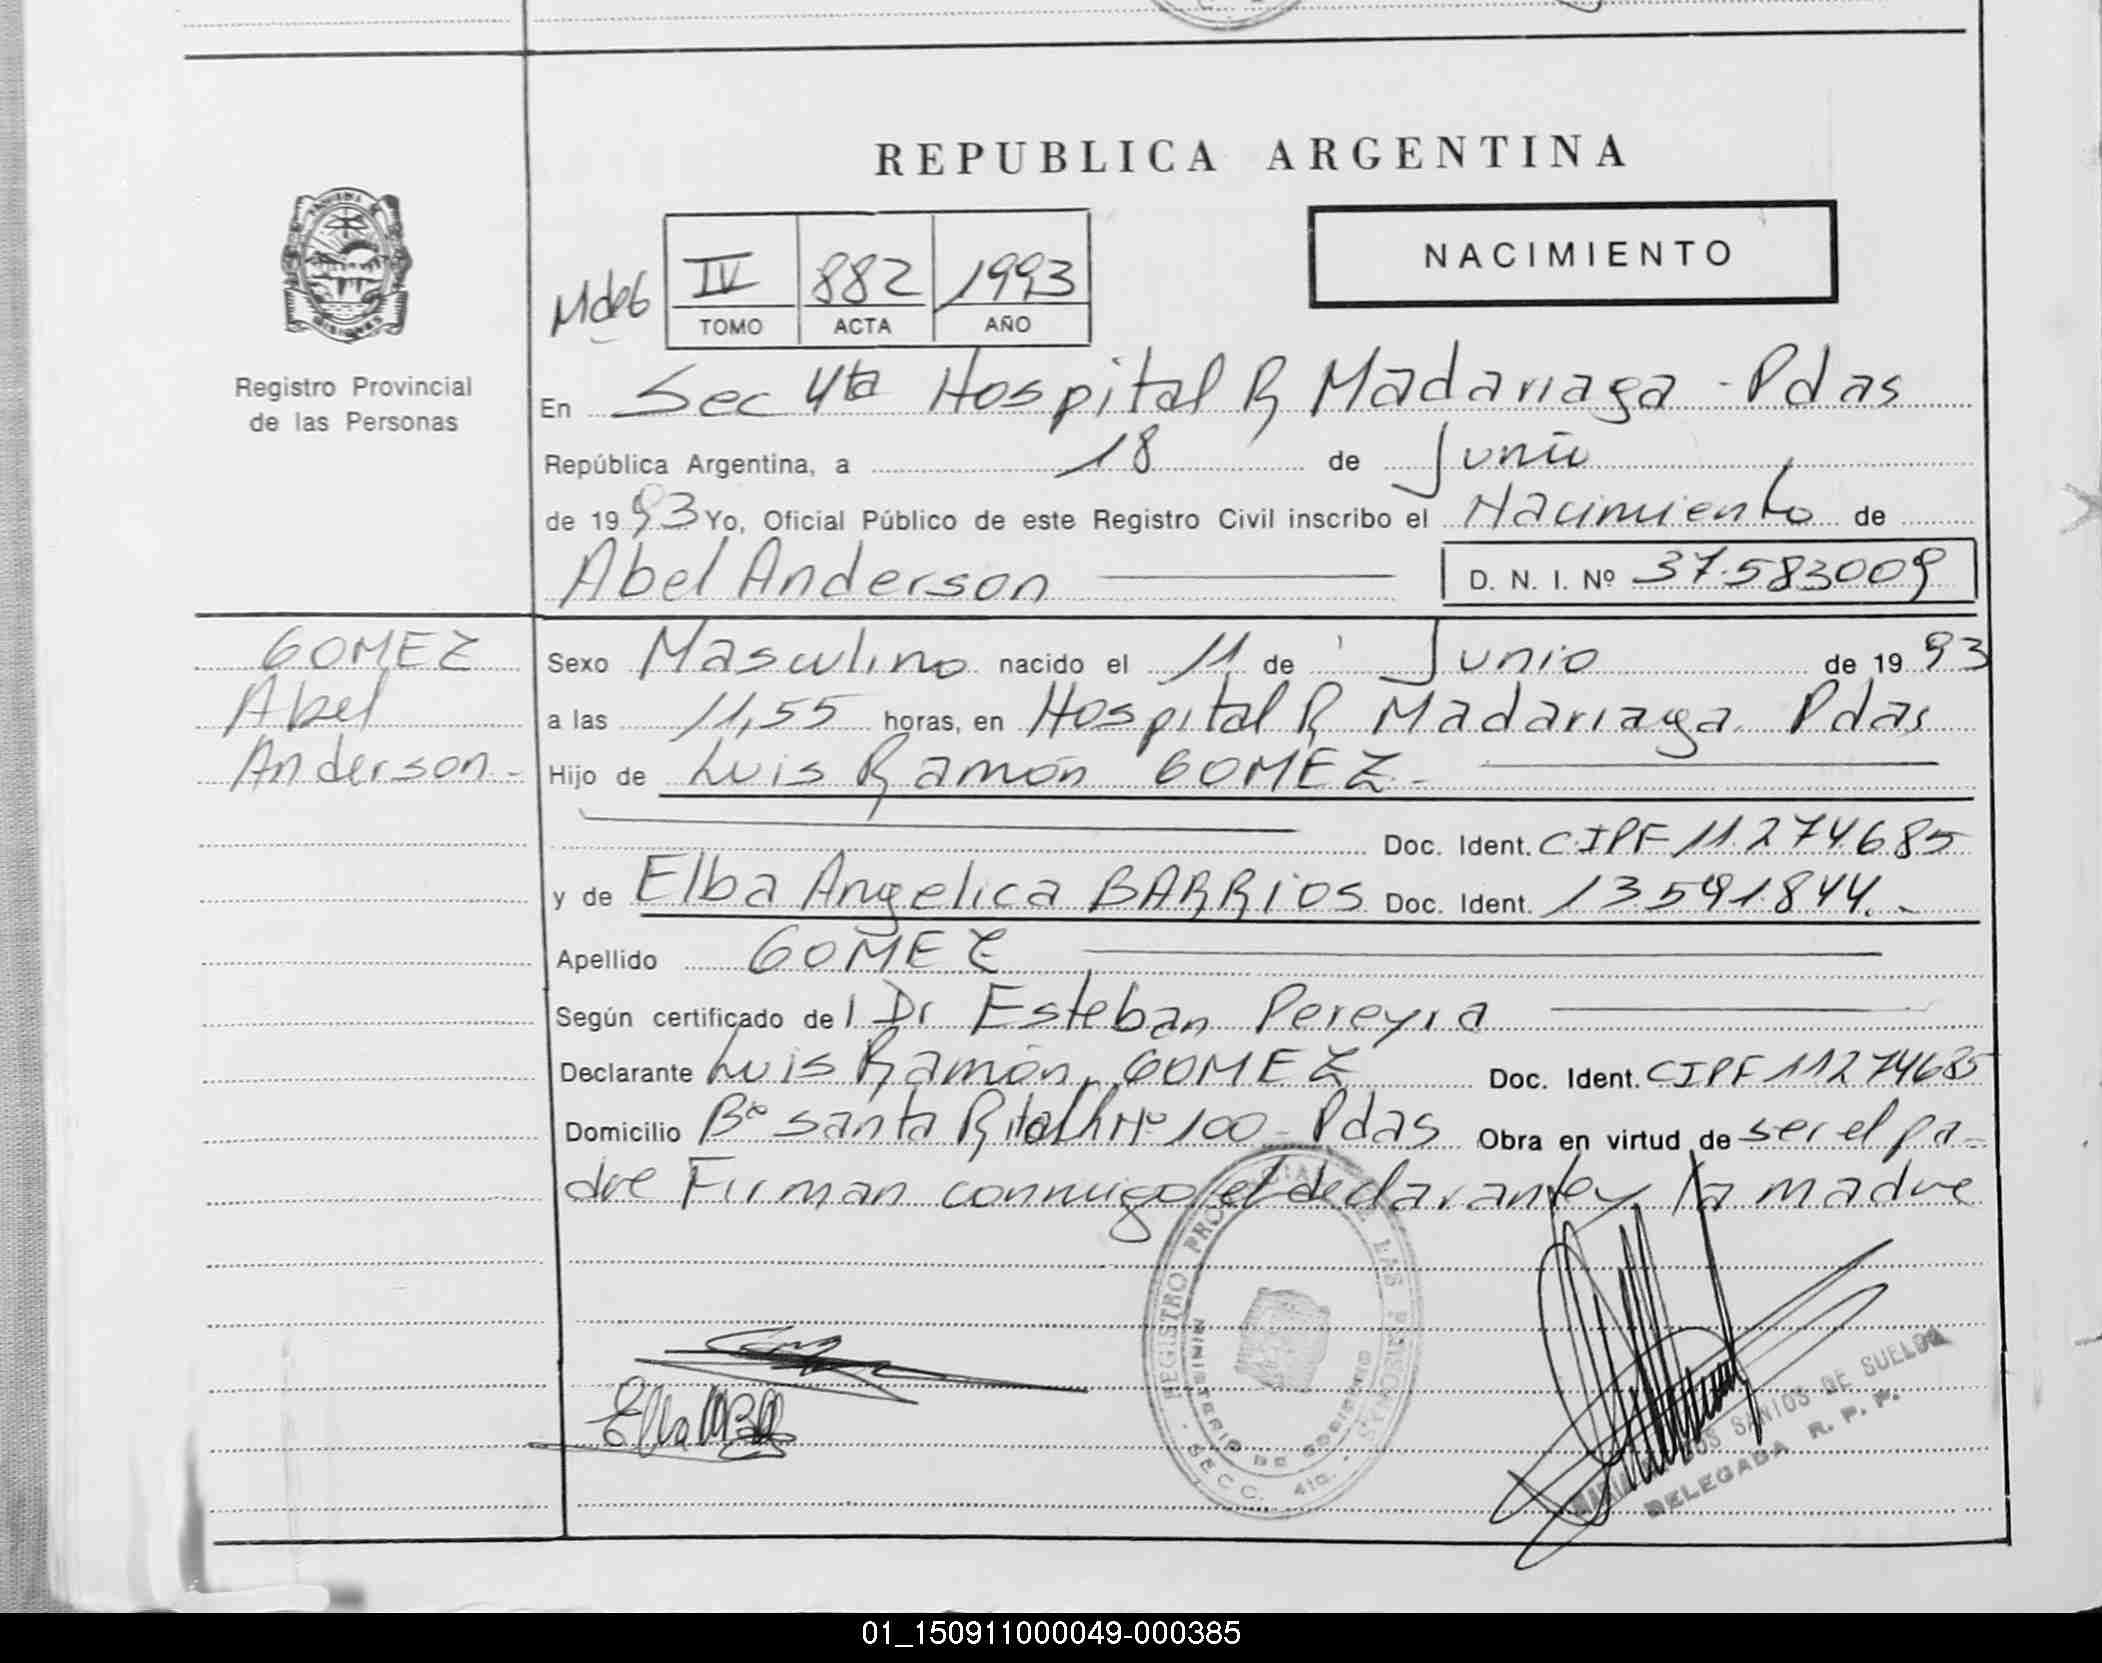 REPUBLICA ARGENTINA
NACIMIENTO
IV 882 1993
TOMO ACTA AÑO
Registro Provincial
de las Personas
En Sec 4ta Hospital R Madariaga - Pdas
República Argentina, a 18 de Junio
de 1993 Yo, Oficial Público de este Registro Civil inscribo el Nacimiento de
Abel Anderson D. N. I. Nº 37.583009
GOMEZ
Abel
Anderson -
Sexo Masculino nacido el 11 de Junio de 1993
a las 11,55 horas, en Hospital R Madariaga Pdas
Hijo de Luis Ramón GOMEZ -
Doc. Ident. CIPF 11.274.685
y de Elba Angelica BARRIOS Doc. Ident. 13591844.-
Apellido GOMEZ
Según certificado del Dr Esteban Pereyra
Declarante Luis Ramón GOMEZ Doc. Ident. CIPF 11274685
Domicilio Bº Santa Rita Nº 100 - Pdas Obra en virtud de ser el pa-
dre Firman conmigo el declarante y la madre
REGISTRO PROVINCIAL DE LAS PERSONAS
MINISTERIO DE GOBIERNO
SECC. 4ta.
SANTOS DE SUELDO
DELEGADA R. P. P.
01_150911000049-000385